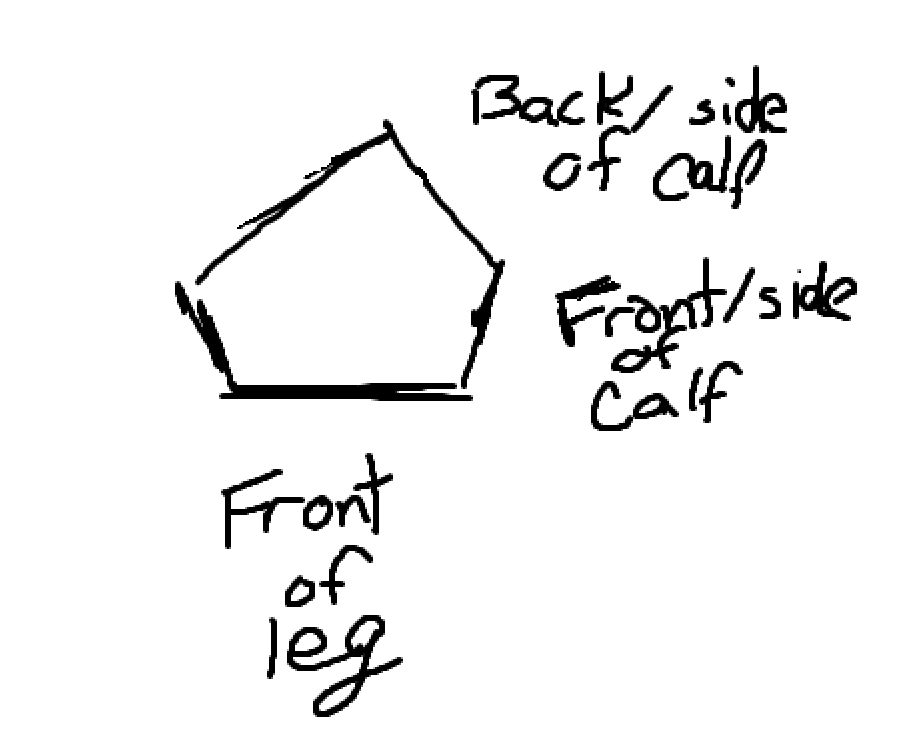 Back/side
of calf
Front/side
of
calf
Front
of
leg